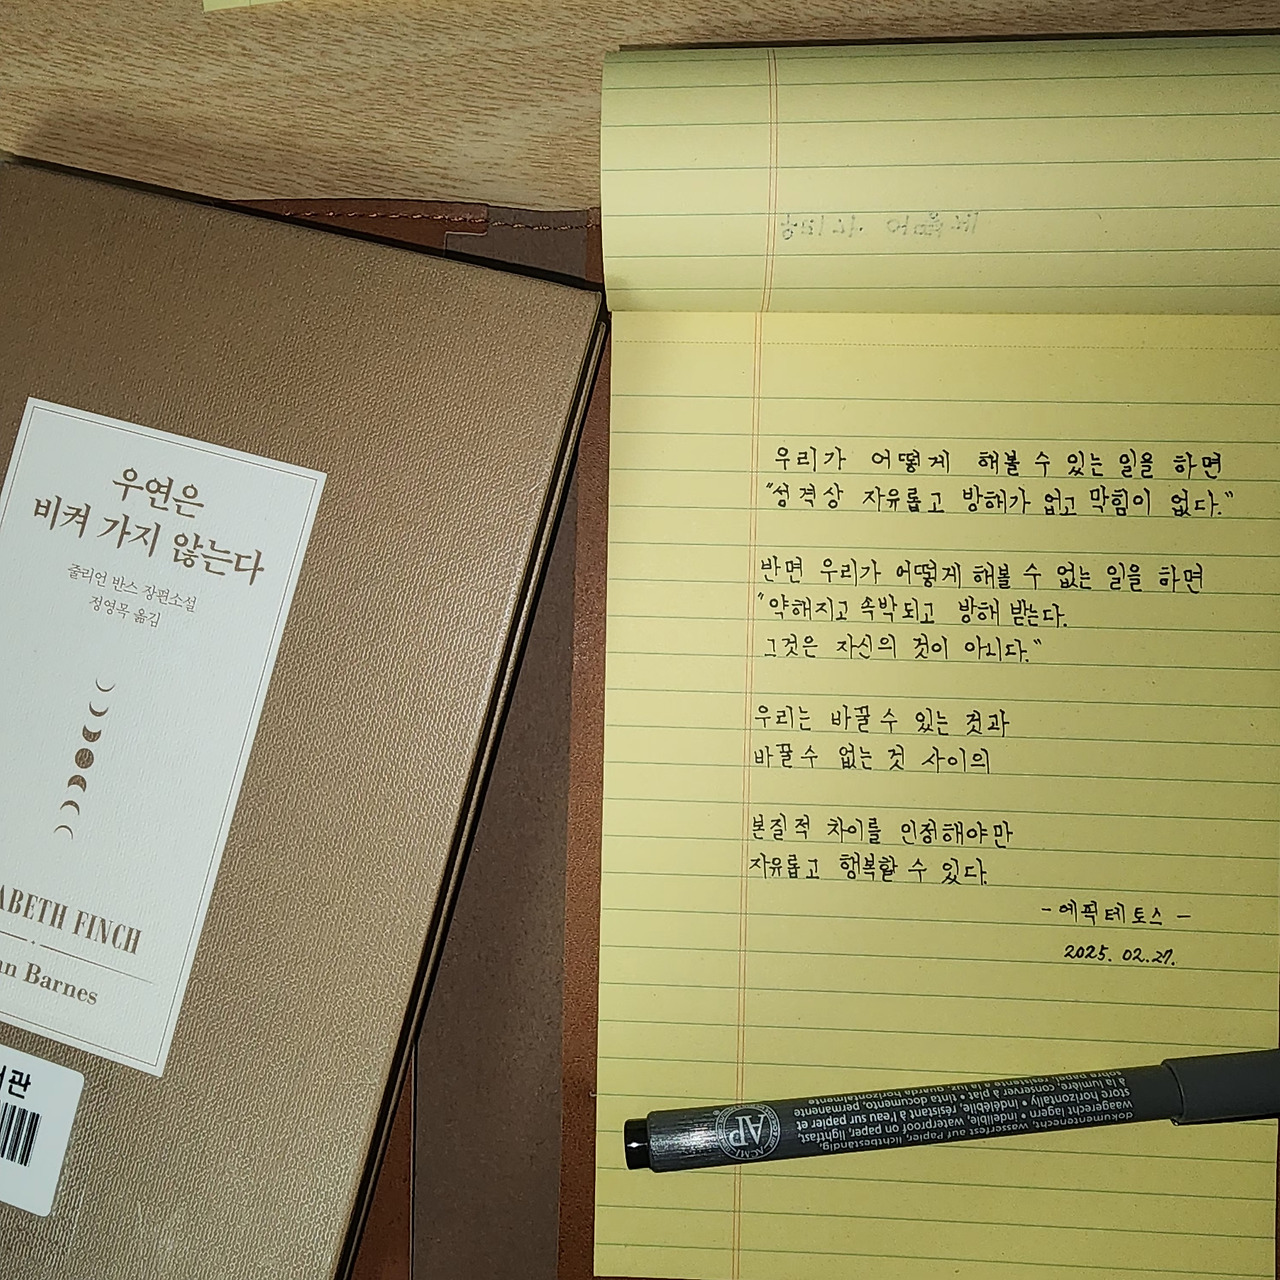 우연은
비켜 가지 않는다
줄리언 반스 장편소설
정영목 옮김
ABETH FINCH
an Barnes
관
우리가 어떻게 해볼 수 있는 일을 하면
"성격상 자유롭고 방해가 없고 막힘이 없다."
반면 우리가 어떻게 해볼 수 없는 일을 하면
"약해지고 속박되고 방해 받는다.
그것은 자신의 것이 아니다."
우리는 바꿀 수 있는 것과
바꿀 수 없는 것 사이의
본질적 차이를 인정해야만
자유롭고 행복할 수 있다.
- 에픽테토스 -
2025. 02.27.
AP
ACMI
dokumentenecht, wasserfest auf Papier, lichtbeständig,
waagerecht lagern • indelible, waterproof on paper, lightfast,
store horizontally • indélébile, résistant à l'eau sur papier et
à la lumière, conserver à plat • tinta documento, permanente
sobre papel, resistente a la luz, guarda horizontalmente